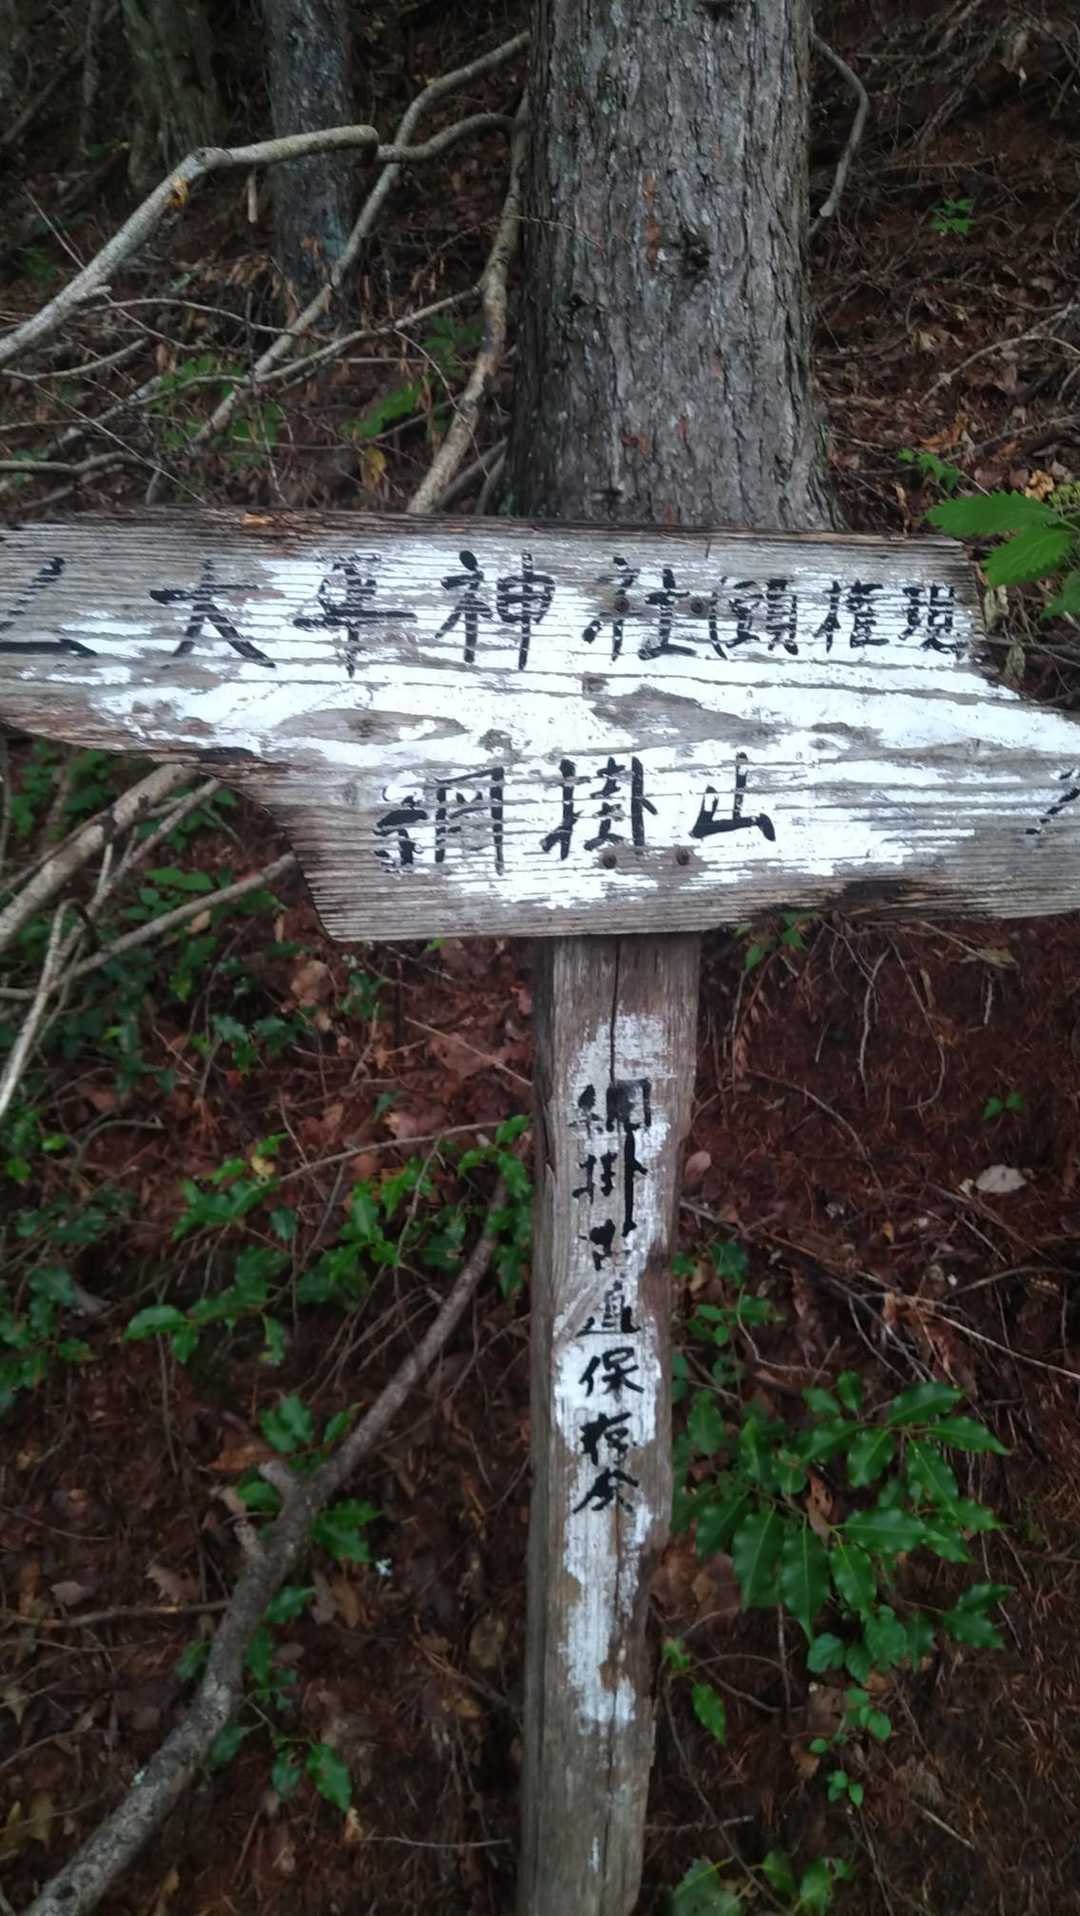 大隼神社(頭権現
網掛山
網掛古道保存会